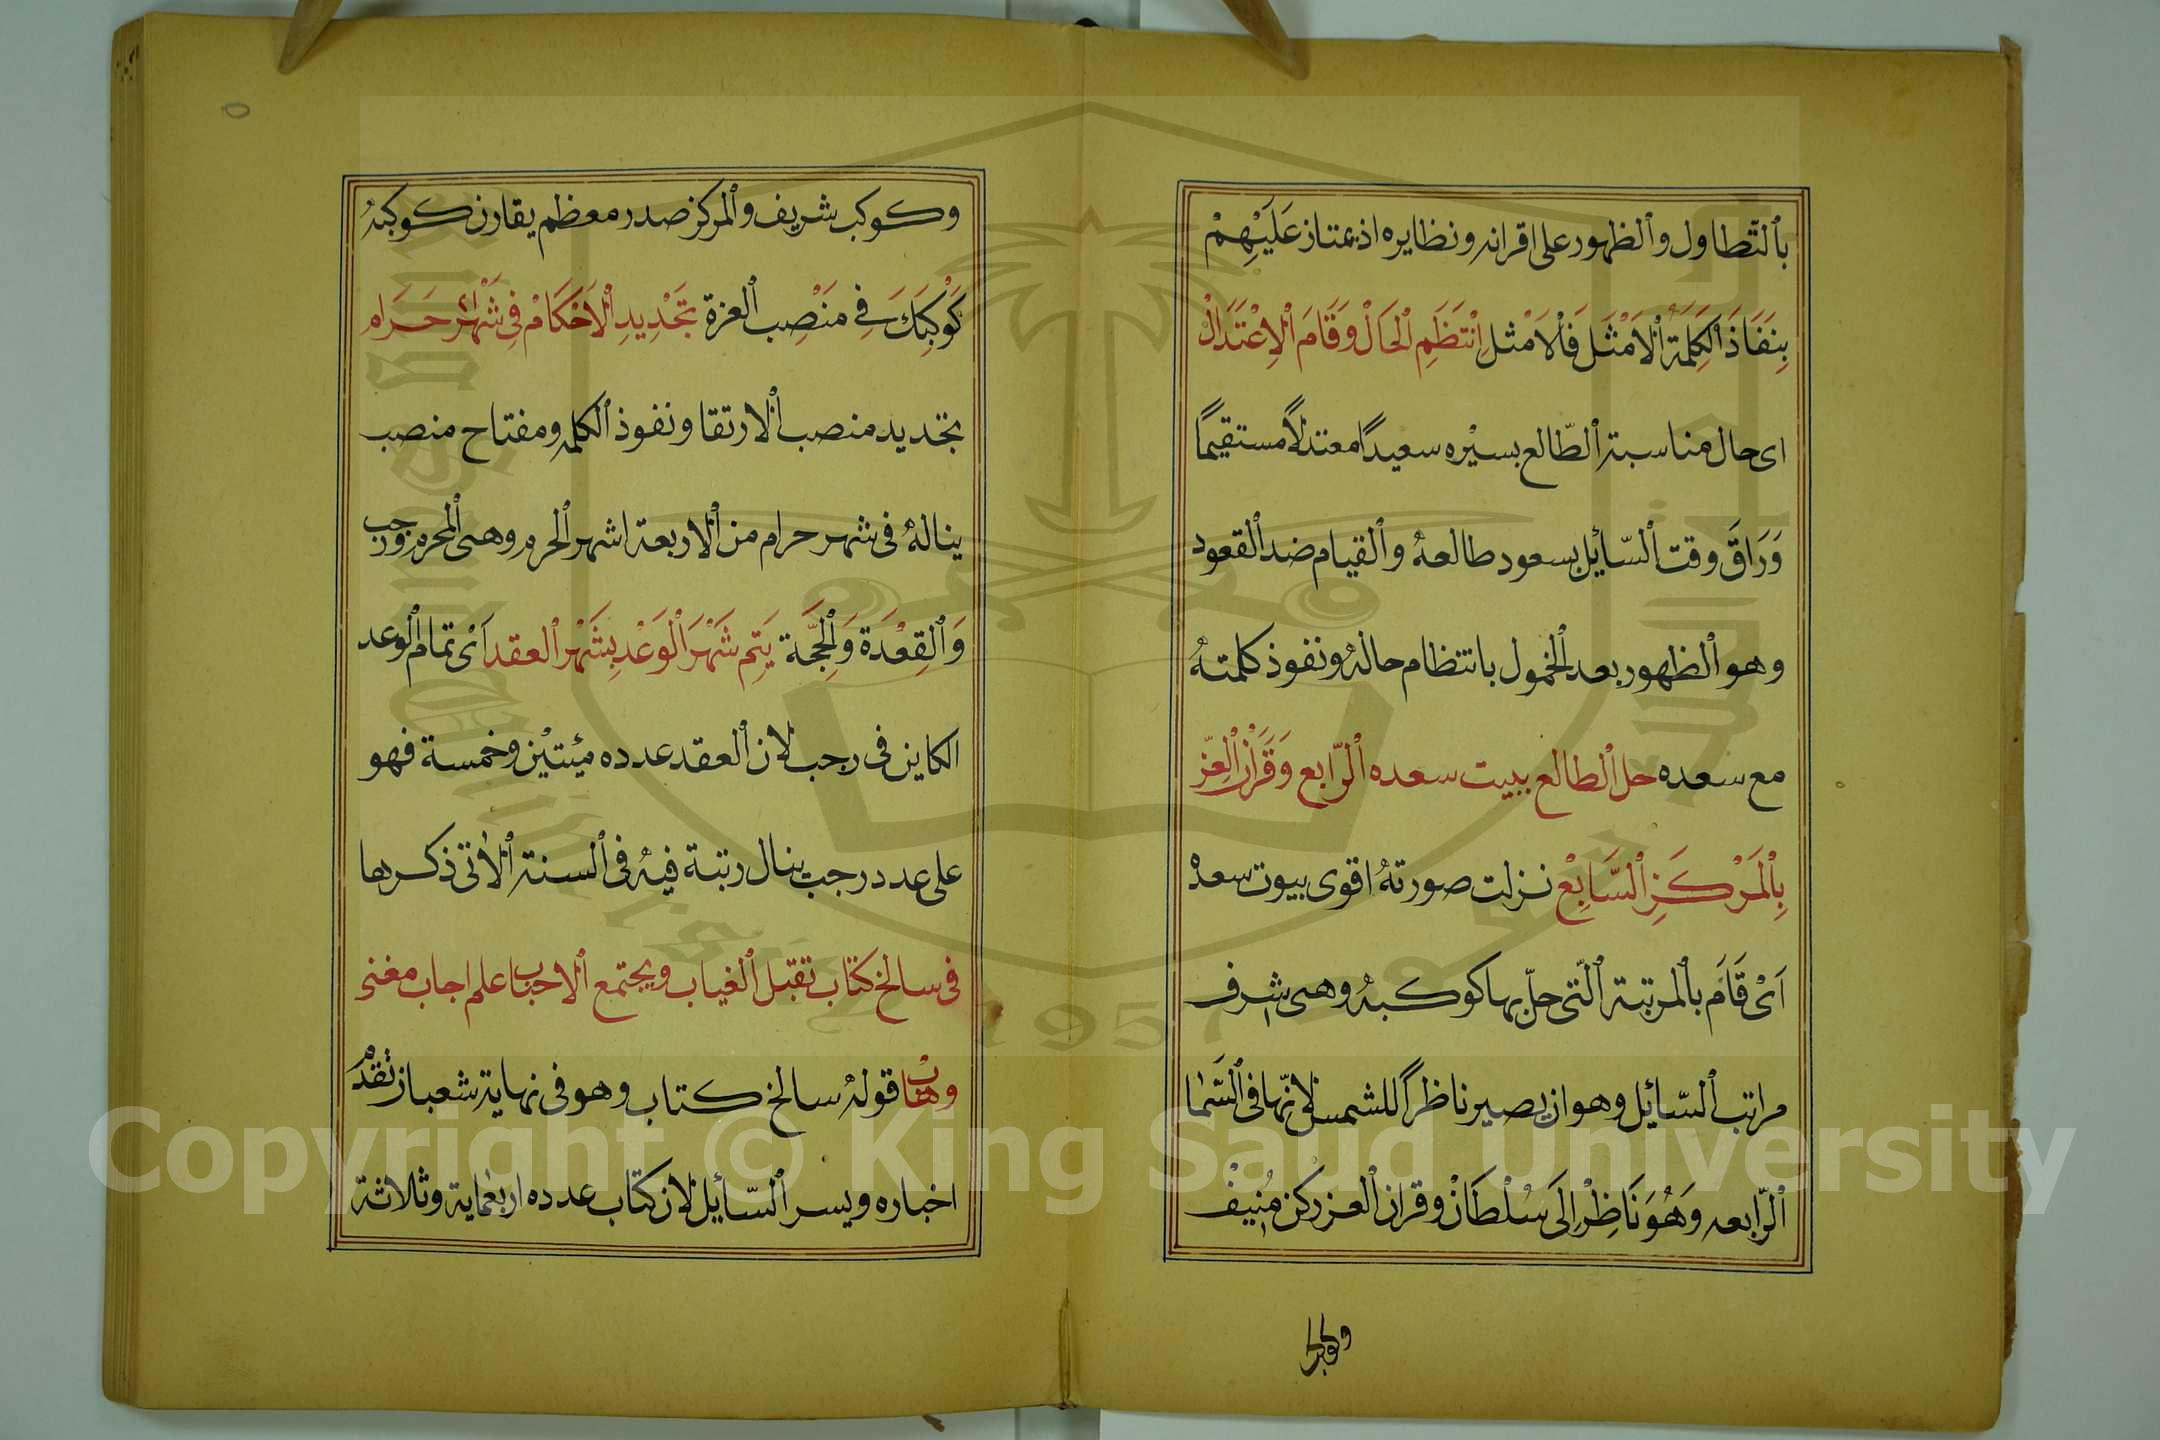 بٱلتّطاول وٱلظهور على اقرانه ونظايره اذ يمتاز عَلَيْهِمْ
بِنَفَاذَ ٱلكَلِمَة ٱلاَمْثَلَ فَٱلاَمْثل اِنْتَظَمِ ٱلحَالْ وَقَامَ ٱلاِعْتَدَالْ
اى حال مناسبة ٱلطّالع بسيْره سعيدًا معتدلاً مستقيمًا
وَرَاقَ وقت ٱلسّائِل بسعود طالعهُ وٱلقيام ضد ٱلقعود
وهو ٱلظهور بعد ٱلخمول بانتظام حالهُ ونفوذ كلمتهُ
مع سعده حل ٱلطالع ببيت سعده ٱلرّابع وَقَرَاَنْ ٱلعِزّ
بِٱلمَرْكَزِ ٱلسَّابِعْ نزلت صورتهُ اقوى بيوت سعده
اَىْ قَامَ بٱلمرتبة ٱلّتى حلّ بها كوكبهُ وهى شرف
مراتب ٱلسّائِل وهو ان يصير ناظرًا للشمس لانّها فى ٱلسَّمٰا
ٱلرّابعه وَهُوَ نَاظِرْ اِلَى سُلْطَانْ وقران ٱلعز ركن مُنِيفْ
وكوكب شريف وٱلمركز صدر معظم يقارن كوكبهُ
كَوْكِبَكَ فِي مَنْصِب ٱلعزة تَجْدِيدِ ٱلاَحْكَامْ فِى شَهْرْ حَرَام
بتجديد منصب ٱلارتقا ونفوذ ٱلكلمه ومفتاح منصب
ينالهُ فى شهر حرام من ٱلاربعة اشهر ٱلحرم وهى ٱلمحرم ورجب
وَٱلقِعْدَة وَٱلحِجَّة يَتِم شَهْرَ ٱلوَعْد بِشَهْر ٱلعقد اَىْ تمام ٱلوعد
الكاين فى رجب لان ٱلعقد عدده ميئتيْن وخمسة فهو
على عدد رجب ينال رتبة فيهُ فى ٱلسنة ٱلاٰتى ذكرها
فى سالخ كتاب تقبل ٱلغياب ويجتمع ٱلاحباب اعلم اجاب مغنى
وهاب قولهُ سالخ كتاب وهو فى نهاية شعبان تقدم
اخباره ويسر ٱلسّائِل لان كتاب عدده اربعماية وثلاثة